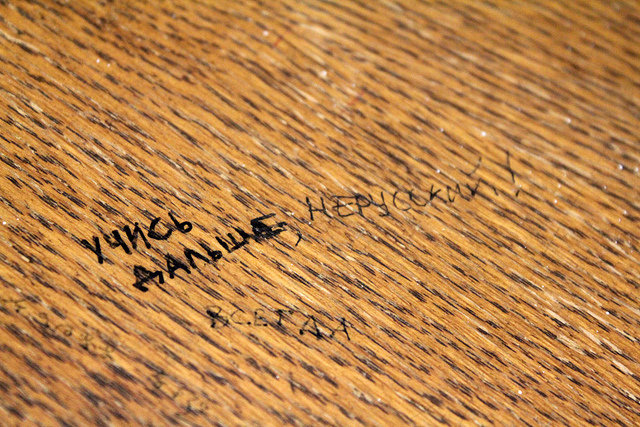 УЧИСЬ
ДАЛЬШЕ, НЕРУССКИЙ!!
ВСЕГДА